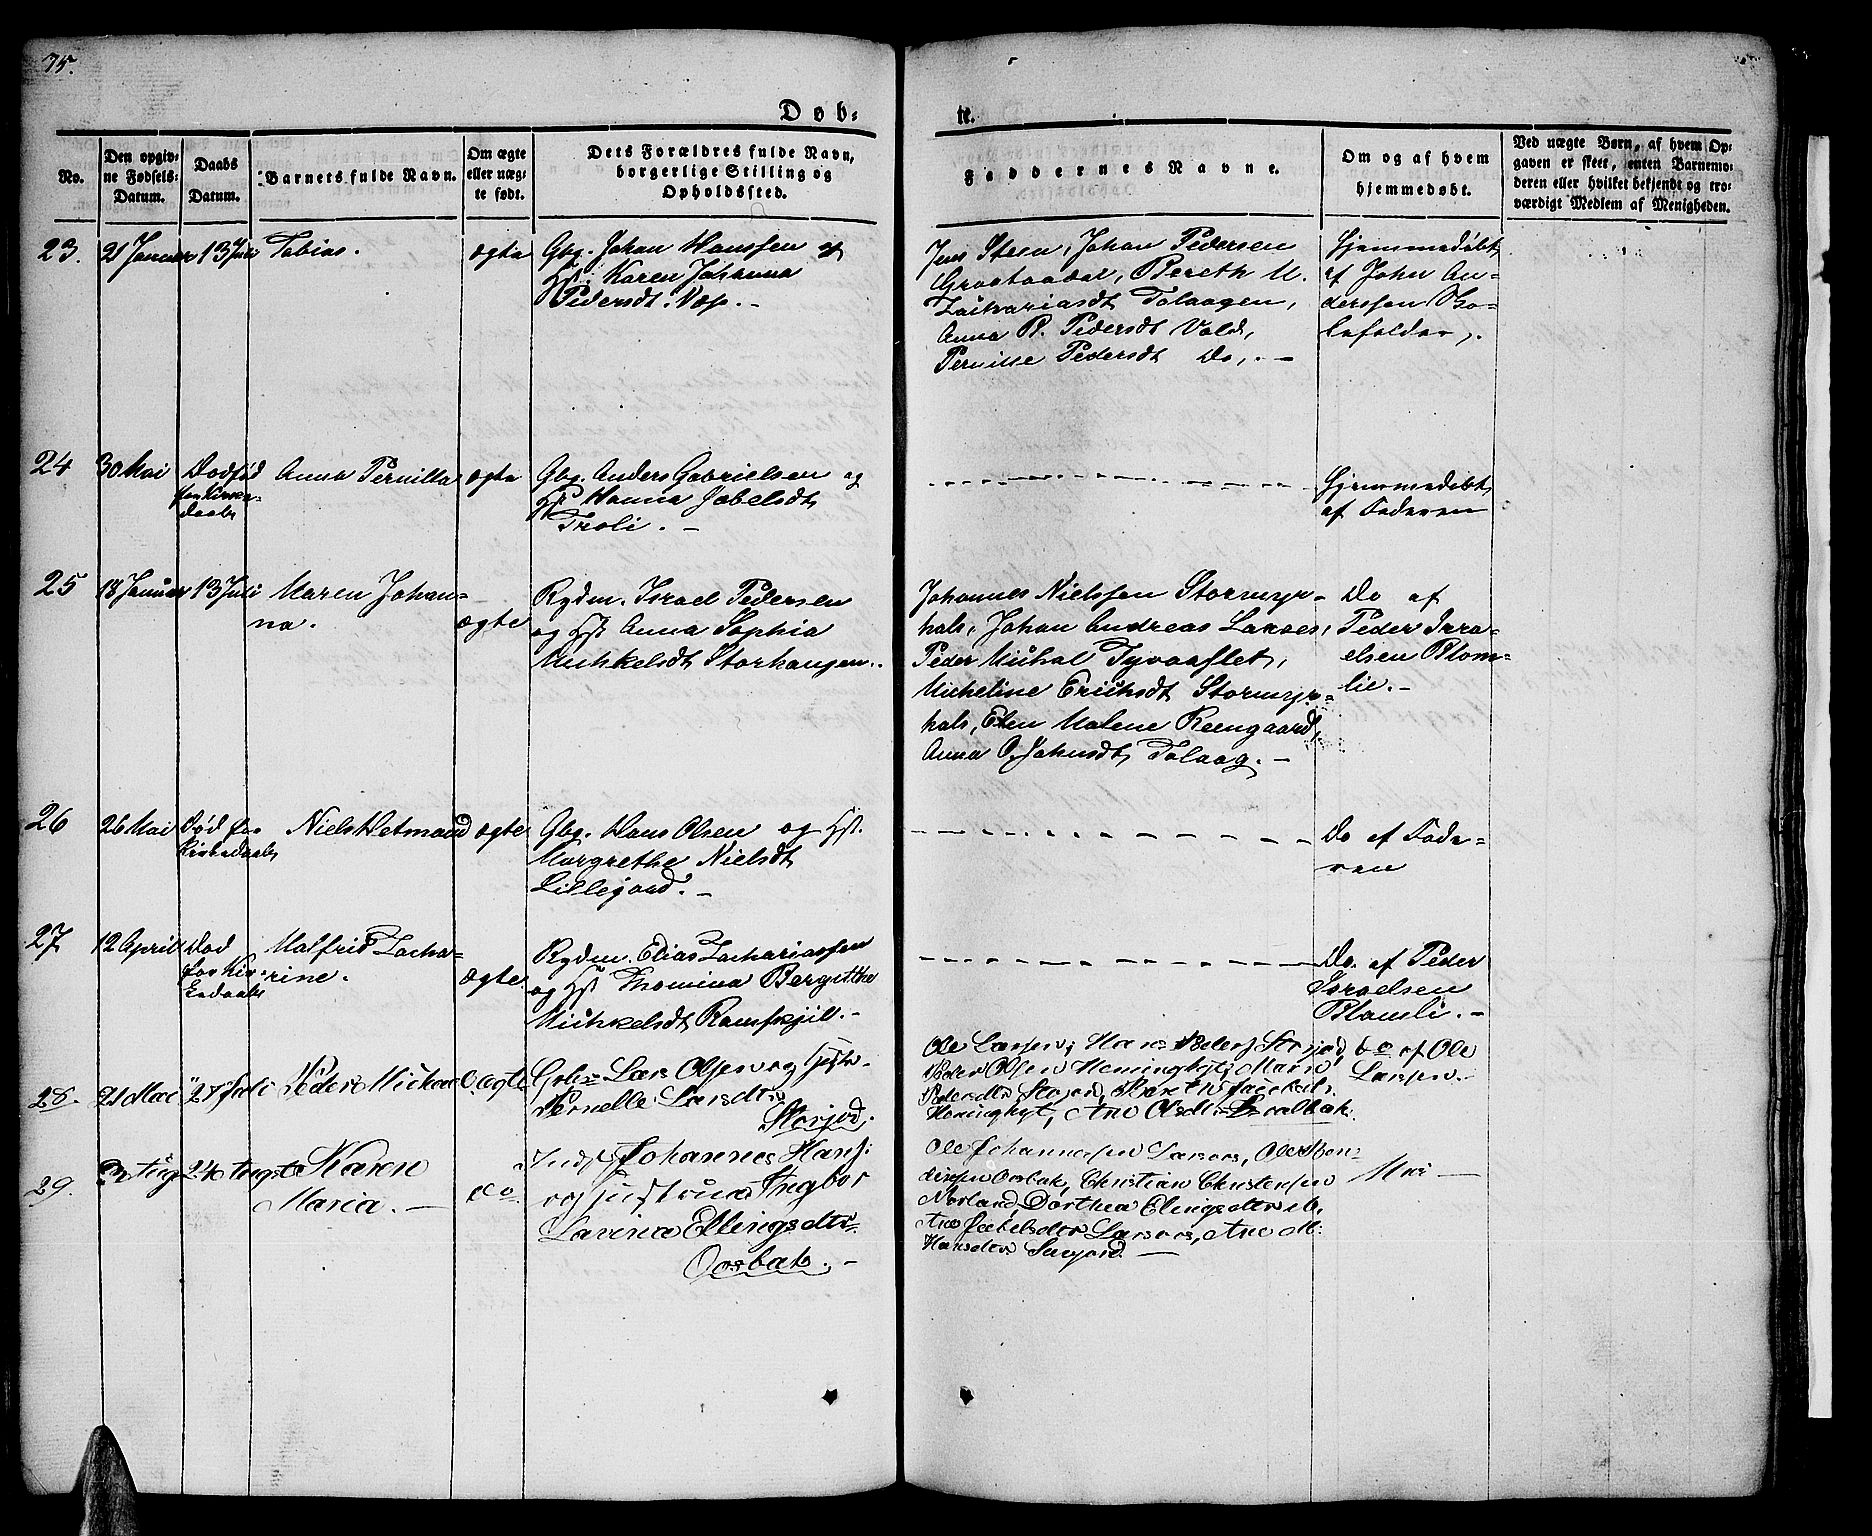 75.
Døb-
te.
No.
Den opgiv-
ne Fødsels-
Datum.
Daabs
Datum.
Barnets fulde Navn.
Om ægte
eller uæg-
te født.
Dets Forældres fulde Navn,
borgerlige Stilling og
Opholdssted.
Faddernes Navne.
Om og af hvem
hjemmedøbt.
Ved uægte Børn, af hvem Op-
gaven er skeet, enten Barnemo-
deren eller hvilket bekjendt og tro-
værdigt Medlem af Menigheden.
23.
21 Januar
13 Juli
Tobias.
ægte
Gbg. Johan Hanssen og
Hst. Karen Johanna
Pedersdt.
Jens Steen, Johan Pedersen
Graataadal, Bereth M.
Zachariasdt Tolaagen,
Anna B. Pedersdt Vold,
Pernille Pedersdt Do,. -
Hjemmedøbt
af John An-
derssen
24
30 Mai
Dødfød
for Kirke-
daab
Anna Pernilla
ægte
Gbg. Anders Gabrielsen og
Hst Hanna Jabelsdt
Troli. -
Hjemmedøbt
af Faderen
25
18 Januar
13 Juli
Maren Johan-
na.
ægte
Rydm. Israel Pedersen
og Hst Anna Sophia
Michkelsdt Storhaugen.
Johannes Nielssen Stormyr-
hals, Johan Andreas
Peder Michal
Micheline Erichsdt Stormyr-
hals, Elen Malene Reengaard,
Anna O. Johnsdt, Tolaag. -
Do af
Peder Isra-
elsen Blom-
lie. -
26
26 Mai
Død før
Kirkedaab
Niels Hetmand
ægte
Gbg. Hans Olsen og Hst.
Margrethe Nielsdt
Lillejord. -
Do af Fade-
ren
27
12 April
Død
før Kir-
kedaab
Malfrid Zacha-
rine.
ægte
Rydm. Elias Zachariassen
og Hst Thomina Bergitha
Michkelsdt Ramskjell. -
Do. af Peder
Israelsen
Blomli. -
28.
21 Mai
27 Juli
Peder Michael
ægte
Lars Olsen og Hustr.
Pernelle Larsdtr
Storjod.
Ole Larsen, Hans Peders Storjod,
Peder Olsen Heminghyt, Maria
Pedersdtr Storjord,
Heminghyt, Ane Olsdtr
Do af Ole
Larsen.
29.
24 August
Karen
Maria. -
do
Inds Johannes Hans:
og Hustrue Ingbor
Lavina Ellingsdtr
Oosbak. -
Ole Johannesen
Oosbak, Christian Christensen
Norland, Dorthea Elingsdtr ib,
Ane Jakelsdtr Ane M:
Hansdtr -
Nei -